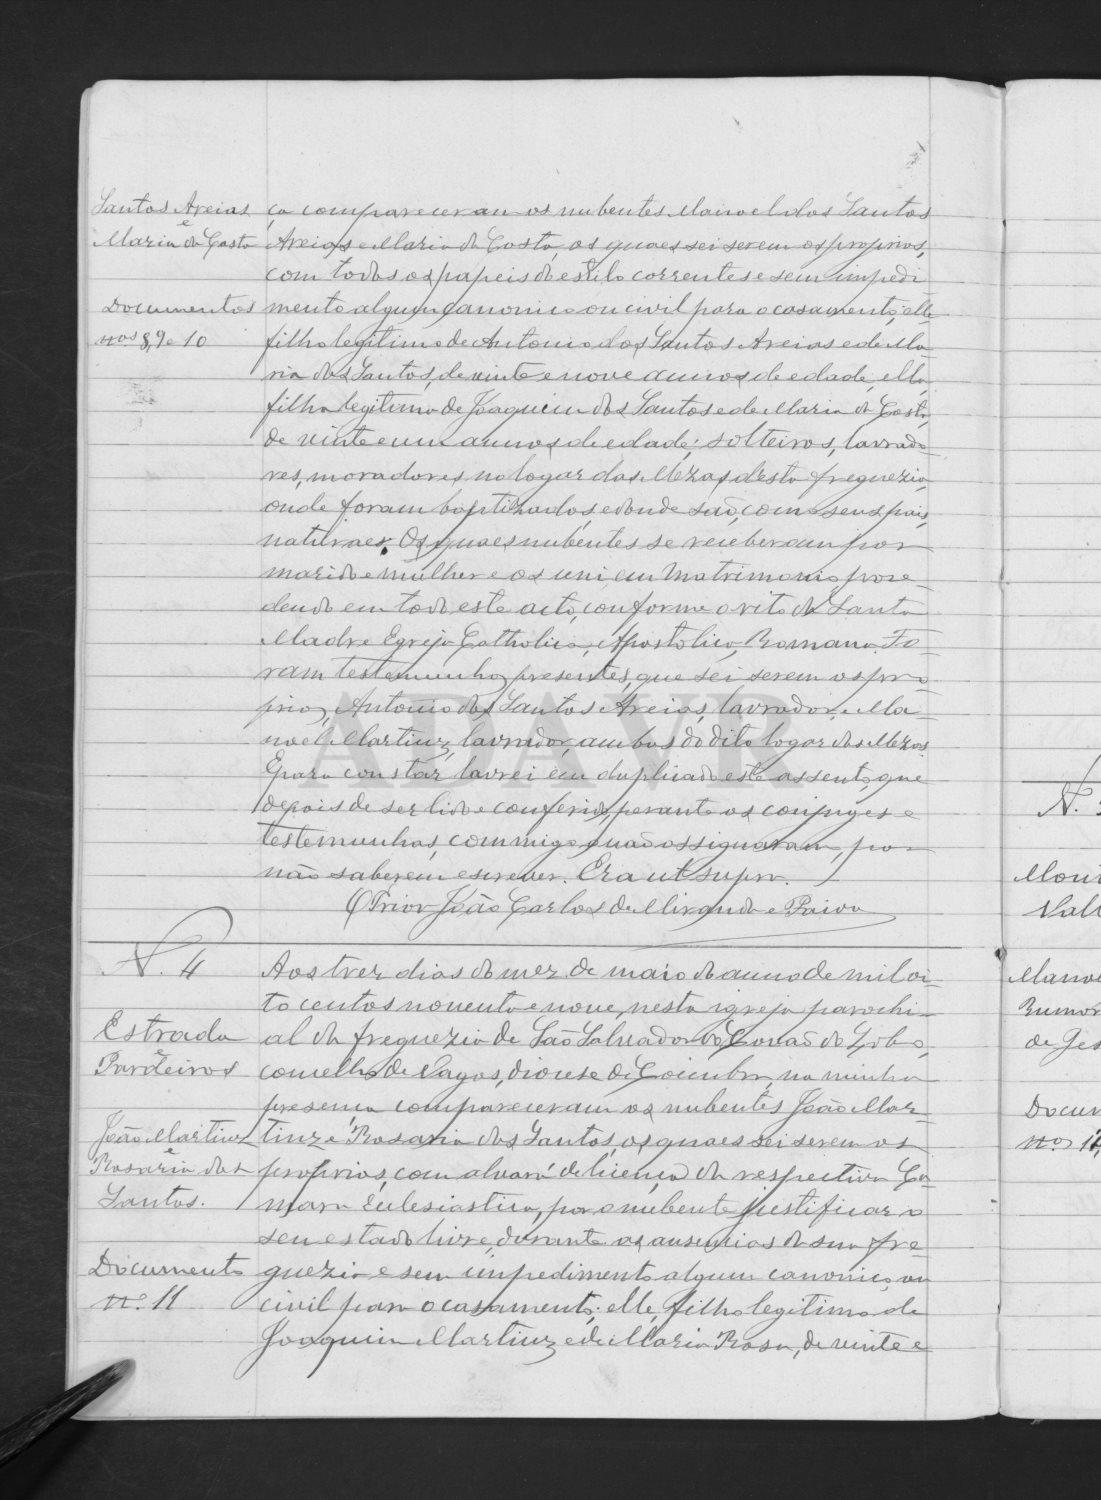 Santos Areias
e
Maria da Costa
Documentos
nos 8, 9 e 10
ça compareceram os nubentes Manoel dos Santos
Areias e Maria da Costa, os quaes sei serem os proprios,
com todos os papeis do estilo correntes e sem impedi-
mento algum canonico ou civil para o casamento; elle
filho legitimo de Antonio dos Santos Areias e de Ma-
ria dos Santos, de vinte e nove annos de edade, ella,
filha legitima de Joaquim dos Santos e de Maria da Costa,
de vinte e um annos de edade; solteiros, lavrado-
res, moradores no logar das Mezas d'esta freguezia,
onde foram baptizados, e d'onde são, com seus pais,
naturaes. Os quaes nubentes se receberam por
marido e mulher e os uni em Matrimonio, proce-
dendo em todo este acto, conforme o rito da Santa
Madre Egreja Catholica, Apostolica, Romana. Fo-
ram testemunhas presentes, que sei serem os pro-
prios, Antonio dos Santos Areias, lavrador, e Ma-
noel Martinz, lavrador, ambos do dito logar das Mezas.
E para constar lavrei em duplicado este assento, que
depois de ser lido e conferido perante os conjuges e
testemunhas, commigo não assignaram, por
não saberem escrever. Era ut supra.
O Prior João Carlos de Miranda e Paiva
N. 4
Estrada
e
Pardeiros
João Martinz
e
Rosaria dos
Santos.
Documento
no. 11
Aos trez dias do mez de maio do anno de mil oi-
to centos noventa e nove, nesta igreja parochi-
al da freguezia de São Salvador do Covão do Lobo,
concelho de Vagos, diocese de Coimbra, na minha
presença compareceram os nubentes João Mar-
tinz e Rosaria dos Santos, os quaes sei serem os
proprios, com alvará de licença da respectiva Ca-
mara Ecclesiastica, por o nubente justificar o
seu estado livre, durante as ausencias da sua fre-
guezia e sem impedimento algum canonico ou
civil para o casamento; elle, filho legitimo de
Joaquim Martinz e de Maria Rosa, de vinte e
ADAVR
N.
Manoe
de Jes
Docum